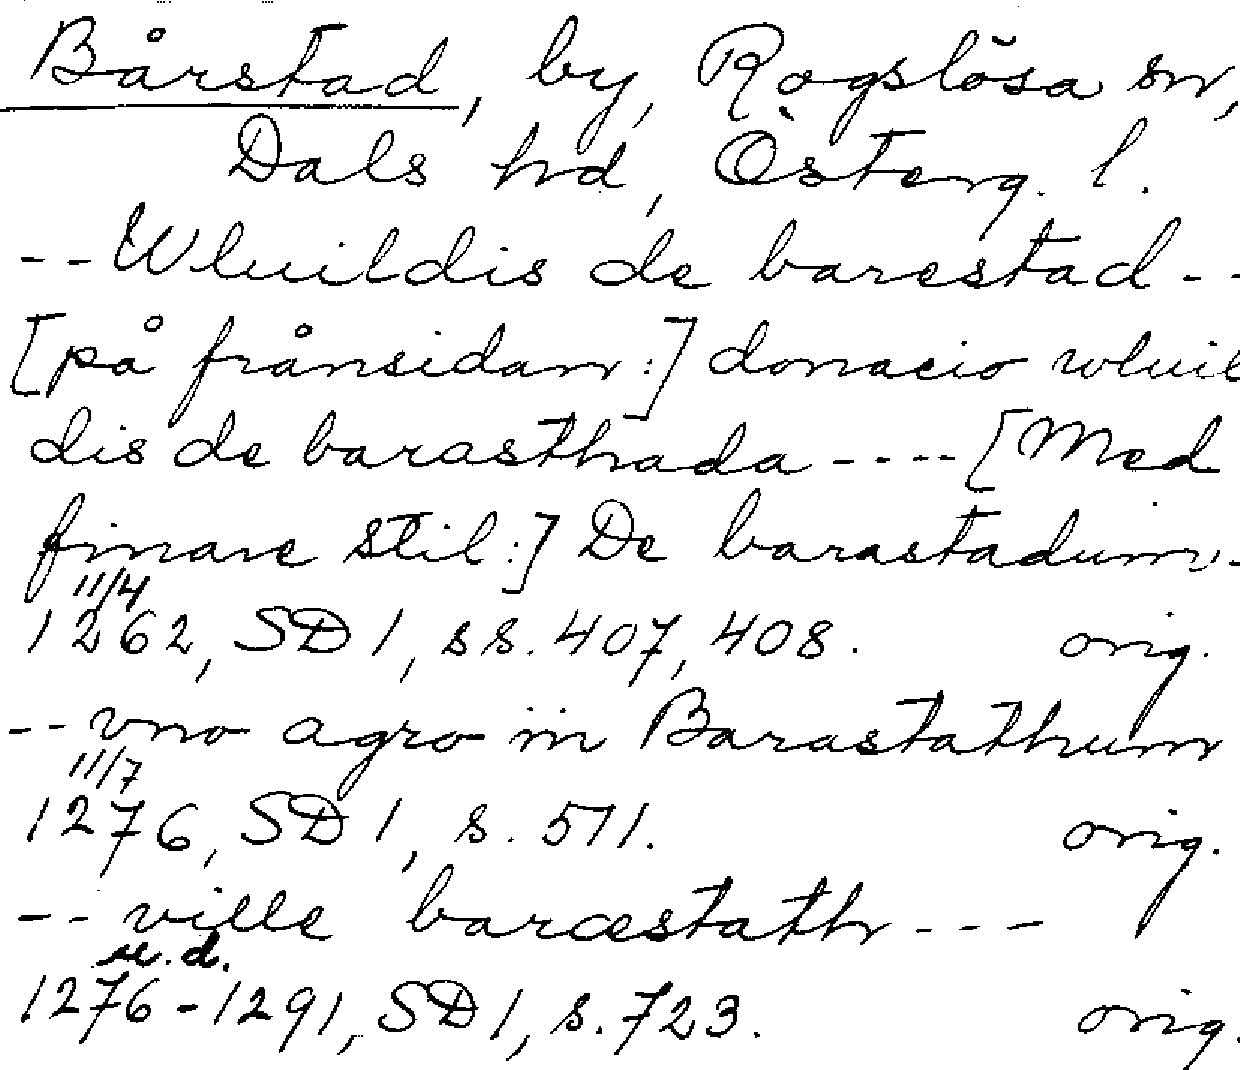 Bårstad, by, Rogslösa sn,
Dals hd, Österg. l.
-- Wluildis de barestad --
[på frånsidan:] donacio wluil
dis de barasthada ---- [Med
finare stil:] De barastadum.-
11/4
1262, SD 1, ss. 407, 408. orig.
-- vno agro in Barastathum
11/7
1276, SD 1, s. 511. orig.
-- ville baræstath ---
u.d.
1276-1291, SD 1, s. 723. orig.